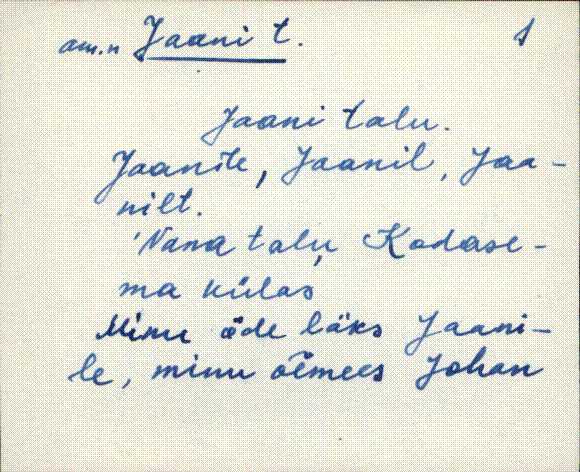 am.n Jaani t. 1
Jaani talu.
Jaanile, Jaanil, Jaa-
nilt.
'Vana talu, Kodase-
ma külas
Minu õde läks Jaani-
le, minu õemees Johan